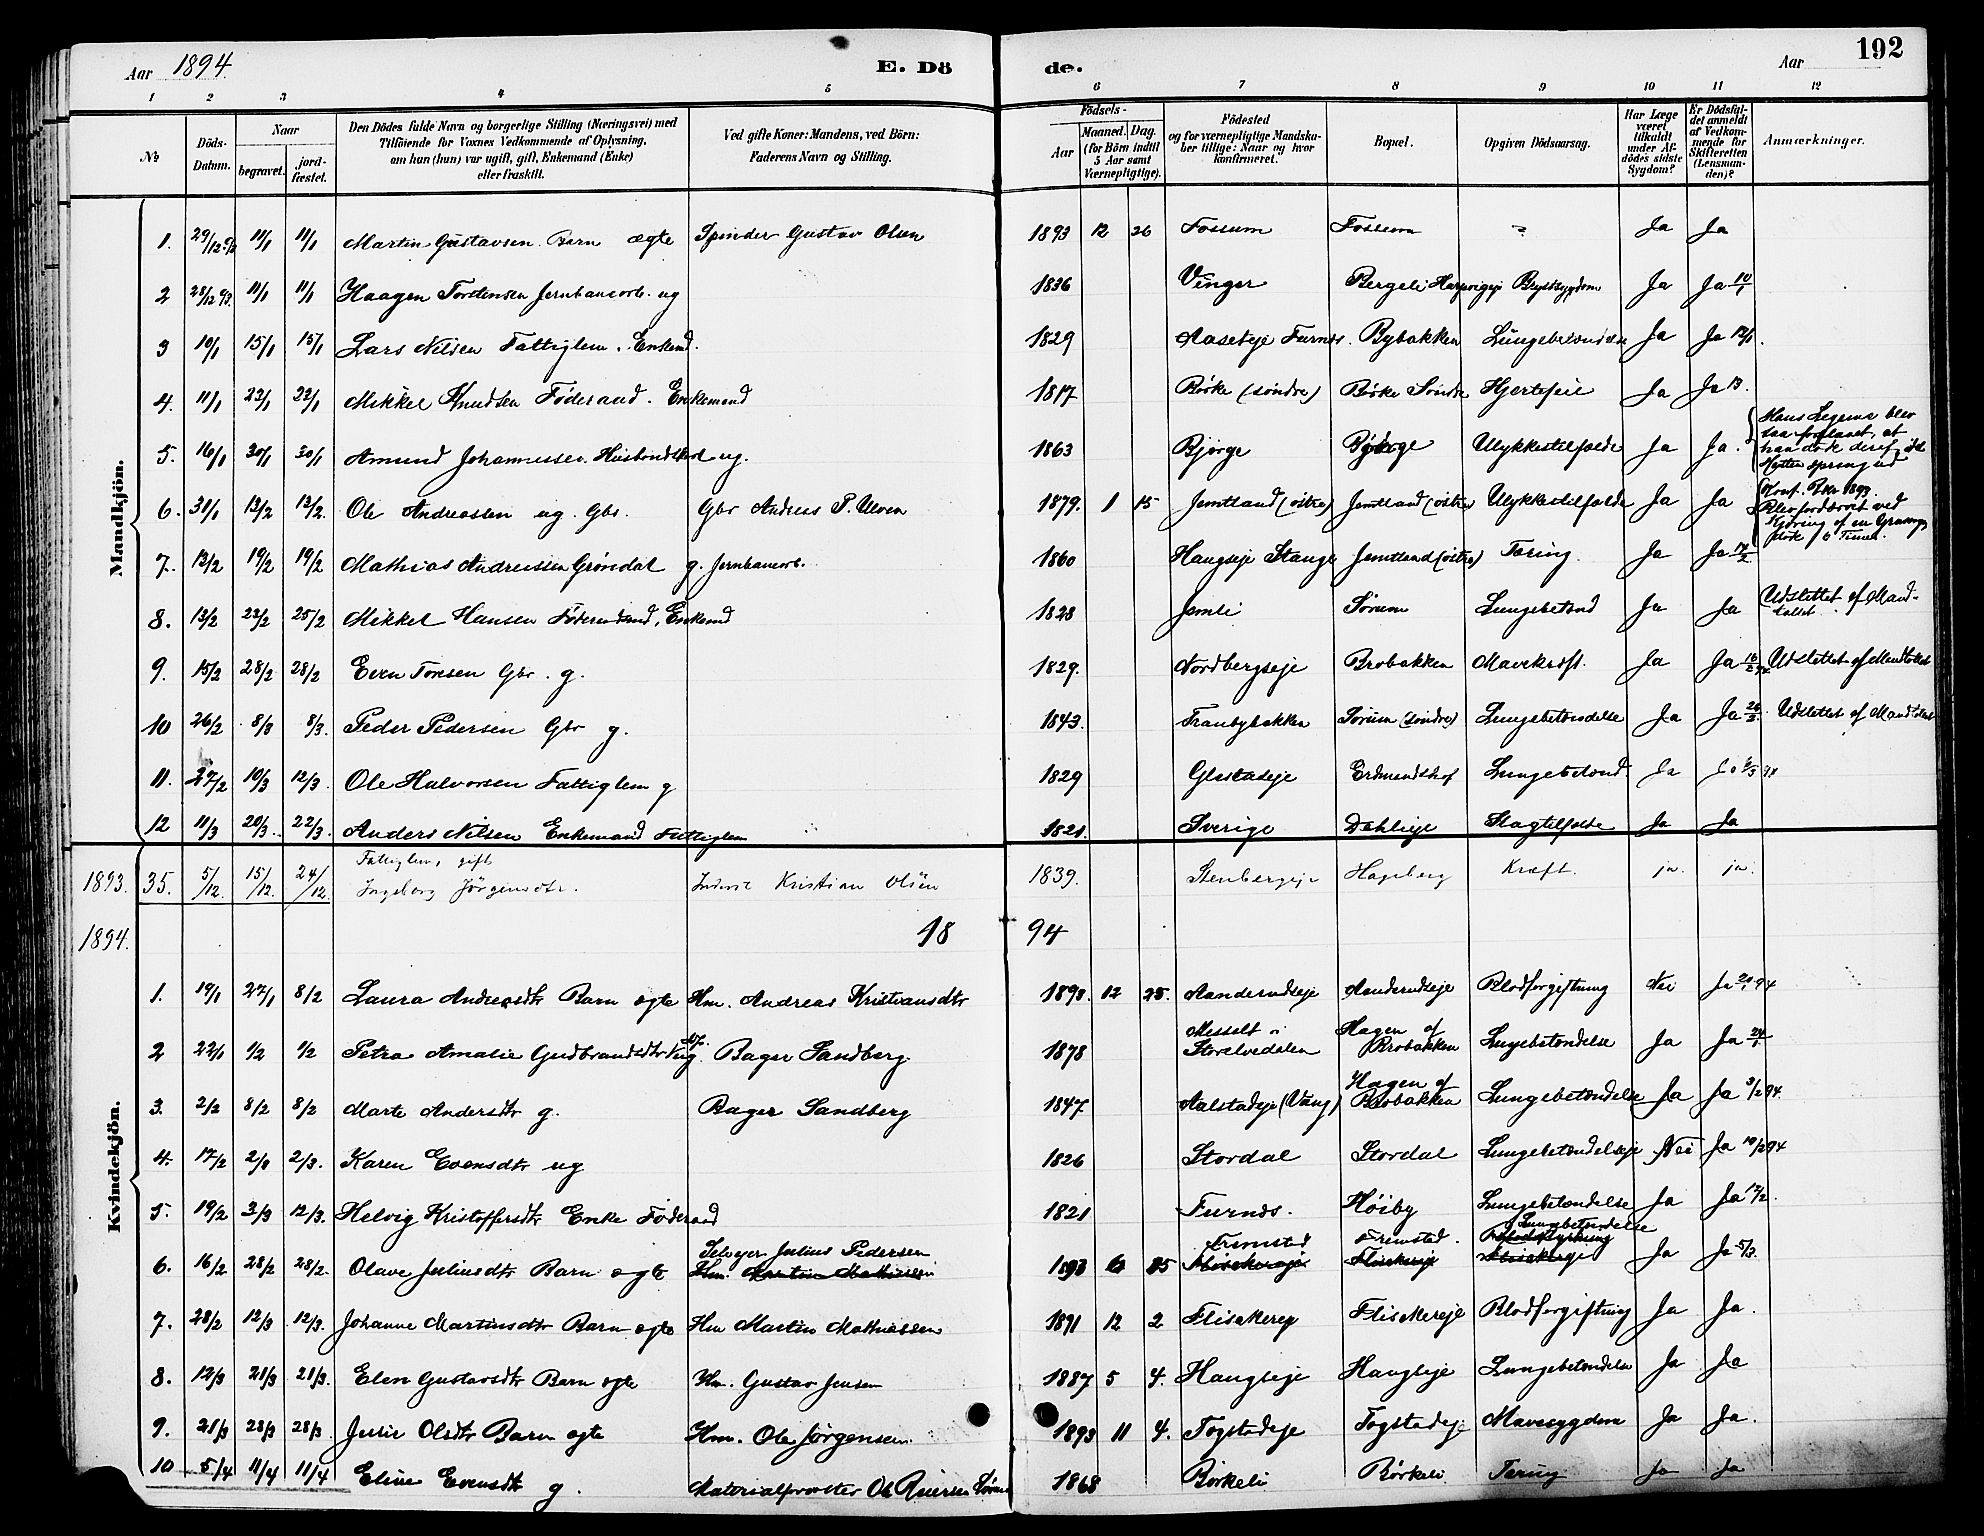 Aar 1894.
E. Dö de.
Aar
192
1 2 3 4 5 6 7 8 9 10 11 12
No
Döds-Datum.
Naar
begravet.
jord-fæstet.
Den Dödes fulde Navn og borgerlige Stilling (Næringsvei) med
Tilföiende for Voxnes Vedkommende af Oplysning,
om han (hun) var ugift, gift, Enkemand (Enke)
eller fraskilt.
Ved gifte Koner: Mandens, ved Börn:
Faderens Navn og Stilling.
Födsels-
Aar
Maaned. Dag.
(for Börn indtil
5 Aar samt
Værnepligtige).
Födested
og for værnepligtige Mandska-
ber tillige: Naar og hvor
konfirmeret.
Bopæl.
Opgiven Dödsaarsag.
Har Læge
været
tilkaldt
under Af-
dödes sidste
Sygdom?
Er Dödsfal-
det anmeldt
af Vedkom-
mende for
Skifteretten
(Lensman-
den)?
Anmærkninger.
Mandkjön.
1. 29/12 11/1 11/1 Martin Gustavsen Barn ægte Spinder Gustav Olsen 1893 12 26 Fossum Fossum Ja Ja
2 28/12 93. 11/1 11/1 Haagen Torstensen Jernbanearb. ug 1836 Vinger Bergeli Brystsygdom Ja Ja 10/1
3 10/1 15/1 15/1 Lars Nilsen Fattiglem. Enkemd. 1829 Aaseteje Furnes. Bybakken Ja Ja 12/1
4. 11/1 22/1 22/1 Mikkel Knudsen Föderaad. Enkemand 1817 Börke (söndre) Börke Söndre Hjertefeil Ja Ja 13.
5. 16/1 30/1 30/1 Amund Johannessen ug. 1863 Bjørge Bjørge Ulykkestilfælde Ja Ja.
Hans Legeme blev
saa forflaaet, at
han døde deraf, idet
6. 31/1 13/2 13/2. Ole Andreassen ug. Gbr. Gbr Andreas P. Ulven 1879. 1 15 Jemtland (östre) Jemtland (östre) Ulykkestilfælde Ja Ja
Konf. 1893.
7. 13/2 19/2 19/2 Mathias Andreasen Gröndal g. Jernbanearb. 1860 Haugseje Stange Jemtland (östre) Tæring. Ja Ja 14/2
8. 13/2 22/2 25/2 Mikkel Hansen Föderaadsmd, Enkemd 1828 Jemli Sörum Lungebetænd Ja Ja Udslettet af Mand-
tallet.
9. 15/2 28/2 28/2 Even Tonsen Gbr. g. 1829. Nordbergseje Brobakken Mavekræft. Ja Ja 16/2 94 Udslettet af Mandtallet
10 26/2 8/3 8/3. Peder Pedersen Gbr g. 1843. Tranbybakken Sörum (söndre) Lungebetændelse Ja Ja Udslettet af Mandtallet
11. 27/2 10/3 12/3. Ole Halvorsen Fattiglem g 1829 Glestadeje Erdmandshof Lungebetænd. Ja Ja 94
12 11/3 20/3. 22/3. Anders Nilsen Enkemand Fattiglem 1821 Sverige Dehlieje Slagtilfælde Ja Ja
1893. 35. 5/12. 15/12. 24/12. Fattiglem, gift
Ingeborg Jörgensdtr. Inderst Kristian Olsen 1839. Stenbergeje Hageberg Kræft. ja. ja.
1894. 18 94
Kvindekjön.
1. 19/1 27/1 8/2 Laura Andreasdtr Barn ægte Hm. Andreas Kristiansdtr 1893. 12 25. Aanderudseje Aanderudseje Blodforgiftning Nei Ja 94
2 22/1 1/2 1/2 Petra Amalie Gudbrandsdtr ug. Bager Sandberg 1878 Messelt i
Storelvedalen Hagen af
Brobakken Lungebetændelse Ja Ja 24/1
3. 2/2 8/2 8/2 Marte Andersdtr g. Bager Sandberg 1847. Aalstadeje (Vang) Hagen af
Brobakken Lungebetændelse Ja Ja 3/2 94.
4. 17/2 2/3 2/3. Karen Evensdtr ug 1826 Stordal Stordal Nei Ja 19/2 94
5. 19/2 3/3 12/3. Helvig Kristoffersdtr Enke Föderaad 1821 Furnes. Höiby Lungebetændelse Ja Ja
6. 16/2 28/2 28/2. Olave Juliusdtr Barn ægte Selveyer Julius Pedersen
Hm. Martin Mathiassen 1893 6 25 Frenstad
Flisakereje Frenstad.
Flisakereje Lungebetændelse
Ja Ja 5/3.
7. 28/2 12/3 12/3. Johanne Martinsdtr Barn ægte Hm Martin Mathiassen 1891 12 2 Flisakereje Flisakereje Blodforgiftning Ja Ja.
8. 12/3 21/3 21/3. Elen Gustavsdtr Barn ægte Hm. Gustav Jensen 1887 5 4. Haugseje Haugseje Lungebetændelse Ja Ja
9. 21/3 28/3 28/3. Julie Olsdtr Barn ægte Hm. Ole Jörgensen. 1893 11 4. Fogstadeje Fogstadeje Mavesygdom Ja Ja.
10 5/4 11/4 11/4 Eline Evensdtr g. Materialforvalter Ole 1868 Börkeli Börkeli Tæring Ja Ja